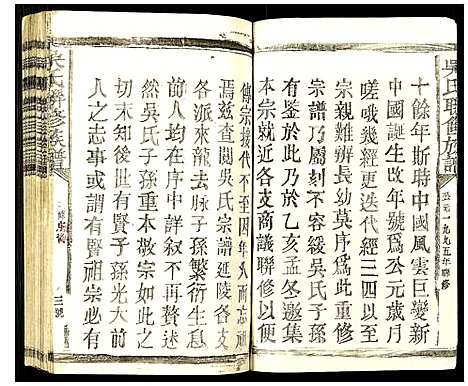 吳氏聯修族譜
公元一九九五年聯修
十餘年斯時中國風雲巨變新
中國誕生改年號為公元歲月
嗟哦幾經更迭代經三四以至
宗親難辨長幼莫序為此重修
宗譜乃屬刻不容緩吳氏子孫
有鑒於此乃於乙亥孟冬邀集
本宗就近各族商議聯修以
傳宗接代不至因年久而忘祖
焉茲查閱吳氏宗譜延陵各支
各派來龍去脉子孫繁衍生息
前人均在序中詳敘不再贅述
然吳氏子孫重本敬宗之思
切末知後世有賢子孫光大前
人之志事或謂有賢祖宗必有
吳氏聯修族譜
三號